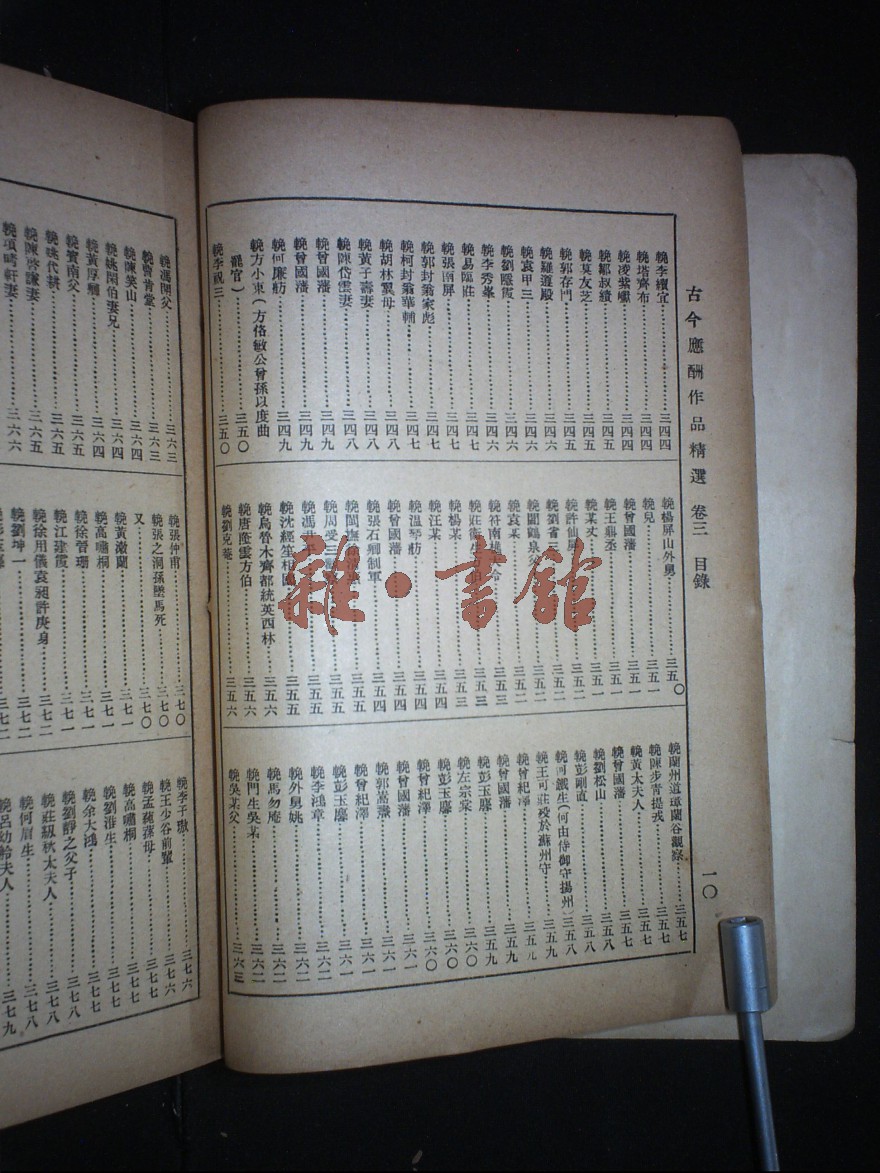 古今應酬作品精選 卷三 目錄
一〇
輓李續宜三四四
輓塔齊布三四四
輓凌紫巘三四四
輓鄒叔績三四五
輓莫友芝三四五
輓郭存門三四五
輓羅遵殿三四五
輓袁甲三三四六
輓劉隱霞三四六
輓李秀峯三四六
輓易臨莊三四七
輓張南屏三四七
輓郭封翁家彪三四七
輓柯封翁華輔三四七
輓胡林翼母三四八
輓黃子壽妻三四八
輓陳岱雲妻三四八
輓曾國藩三四九
輓曾國藩三四九
輓何廉舫三四九
輓方小東(方恪敏公曾孫以度曲
罷官)三五〇
輓李眉三三五〇
輓楊屏山外舅三五〇
輓兒三五一
輓曾國藩三五一
輓王鼎丞三五一
輓某丈三五一
輓許仙屏三五二
輓劉省三三五二
輓閻鶴泉父三五二
輓袁某三五二
輓符南樵大令三五三
輓莊衛生方伯三五三
輓楊某三五三
輓汪某三五四
輓溫琴舫三五四
輓曾國藩三五四
輓張石卿制軍三五四
輓閩撫三五五
輓周受三三五五
輓馮三五五
輓沈經笙相國三五五
輓烏魯木齊都統英西林三五六
輓唐蔭雲方伯三五六
輓劉克菴三五六
輓蘭州道章蘭谷觀察三五七
輓陳步青提戎三五七
輓黃太夫人三五七
輓曾國藩三五七
輓劉松山三五八
輓彭剛直三五八
輓何鐵生(何由侍御守揚州)三五八
輓王可莊歿於蘇州守三五九
輓曾紀澤三五九
輓曾國藩三五九
輓彭玉麐三五九
輓左宗棠三六〇
輓彭玉麐三六〇
輓曾紀澤三六〇
輓曾國藩三六一
輓郭嵩燾三六一
輓曾紀澤三六一
輓彭玉麐三六一
輓李鴻章三六二
輓外舅姚三六二
輓馬勿庵三六二
輓門生吳某三六二
輓吳某父三六三
輓馮閏父三六三
輓曾肯堂三六三
輓陳笑山三六四
輓姚閑伯妻兄三六四
輓黃厚卿三六四
輓竇南父三六五
輓姚代耕三六五
輓陳啓謙妻三六五
輓項晴軒妻三六六
輓張仲甫三七〇
輓張之洞孫墜馬死三七〇
又三七〇
輓黃澂蘭三七一
輓高嘯桐三七一
輓徐晉珊三七一
輓江建霞三七一
輓徐用儀袁昶許庚身三七二
輓劉坤一三七二
輓李子璈三七六
輓王少谷前輩三七六
輓孟蓴蓀母三七七
輓高嘯桐三七七
輓劉淮生三七七
輓余大鴻三七七
輓劉靜之父子三七八
輓莊紉秋太夫人三七八
輓何眉生三七八
輓呂幼舲夫人三七九
雜·書館